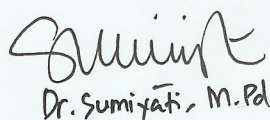 Dr. Sumiyati, M.Pd